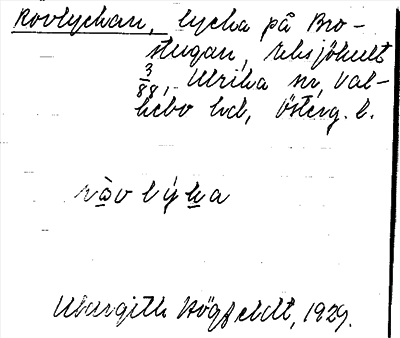 Rovlyckan, lycka på Bro-
stugan, Rebsjöhult
3/88, Ulrika sn, Val-
kebo hd, Österg. l.
ròv lýka
Margith Högfeldt, 1929.